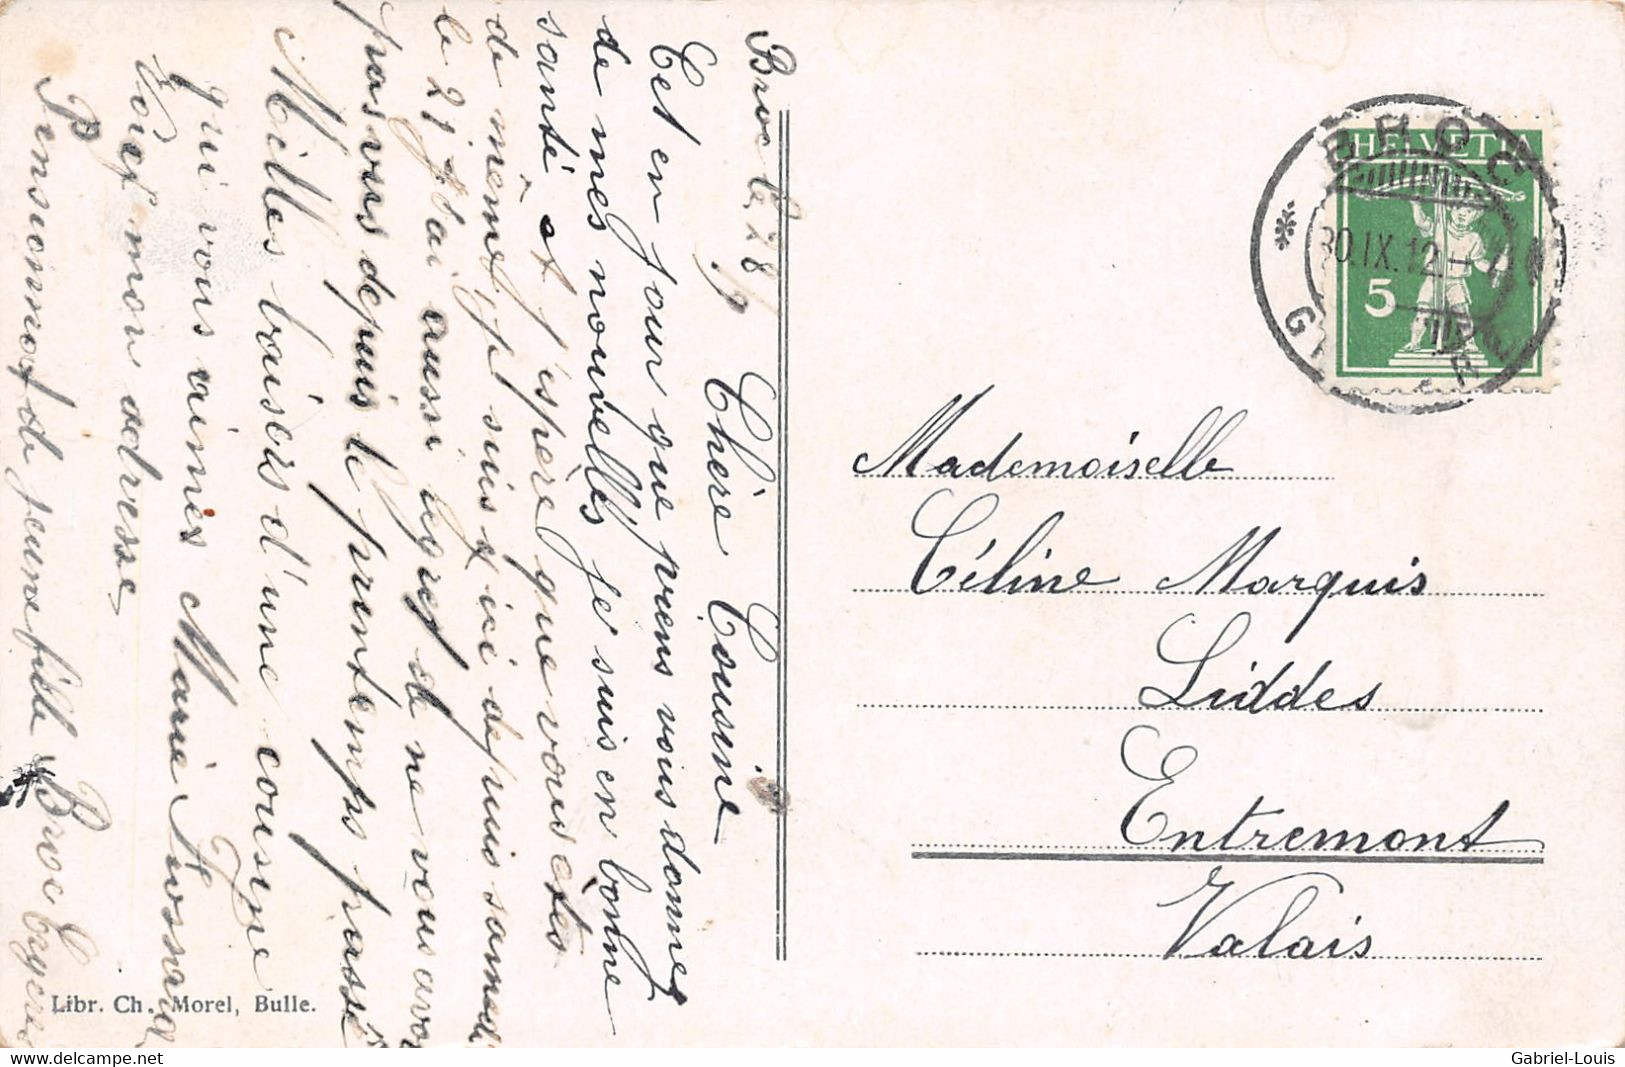 Broc le 28/9
Chère Cousine
C'est en jour que viens vous donner
de mes nouvelles je suis en bonne
santé et j'espère que vous êtes
de même je suis ici depuis samedi
le 21 j'ai aussi regret de ne vous avoir
pas vus depuis le printemps passé
Milles baisers d'une cousine
qui vous aimes Marie
Voici mon adresse
Pensionnat de jeune fille Broc
Libr. Ch. Morel, Bulle.
HELVETIA
5
BROC
30.IX.12
Mademoiselle
Céline Marquis
Liddes
Entremont
Valais
delcampe.net
Gabriel-Louis